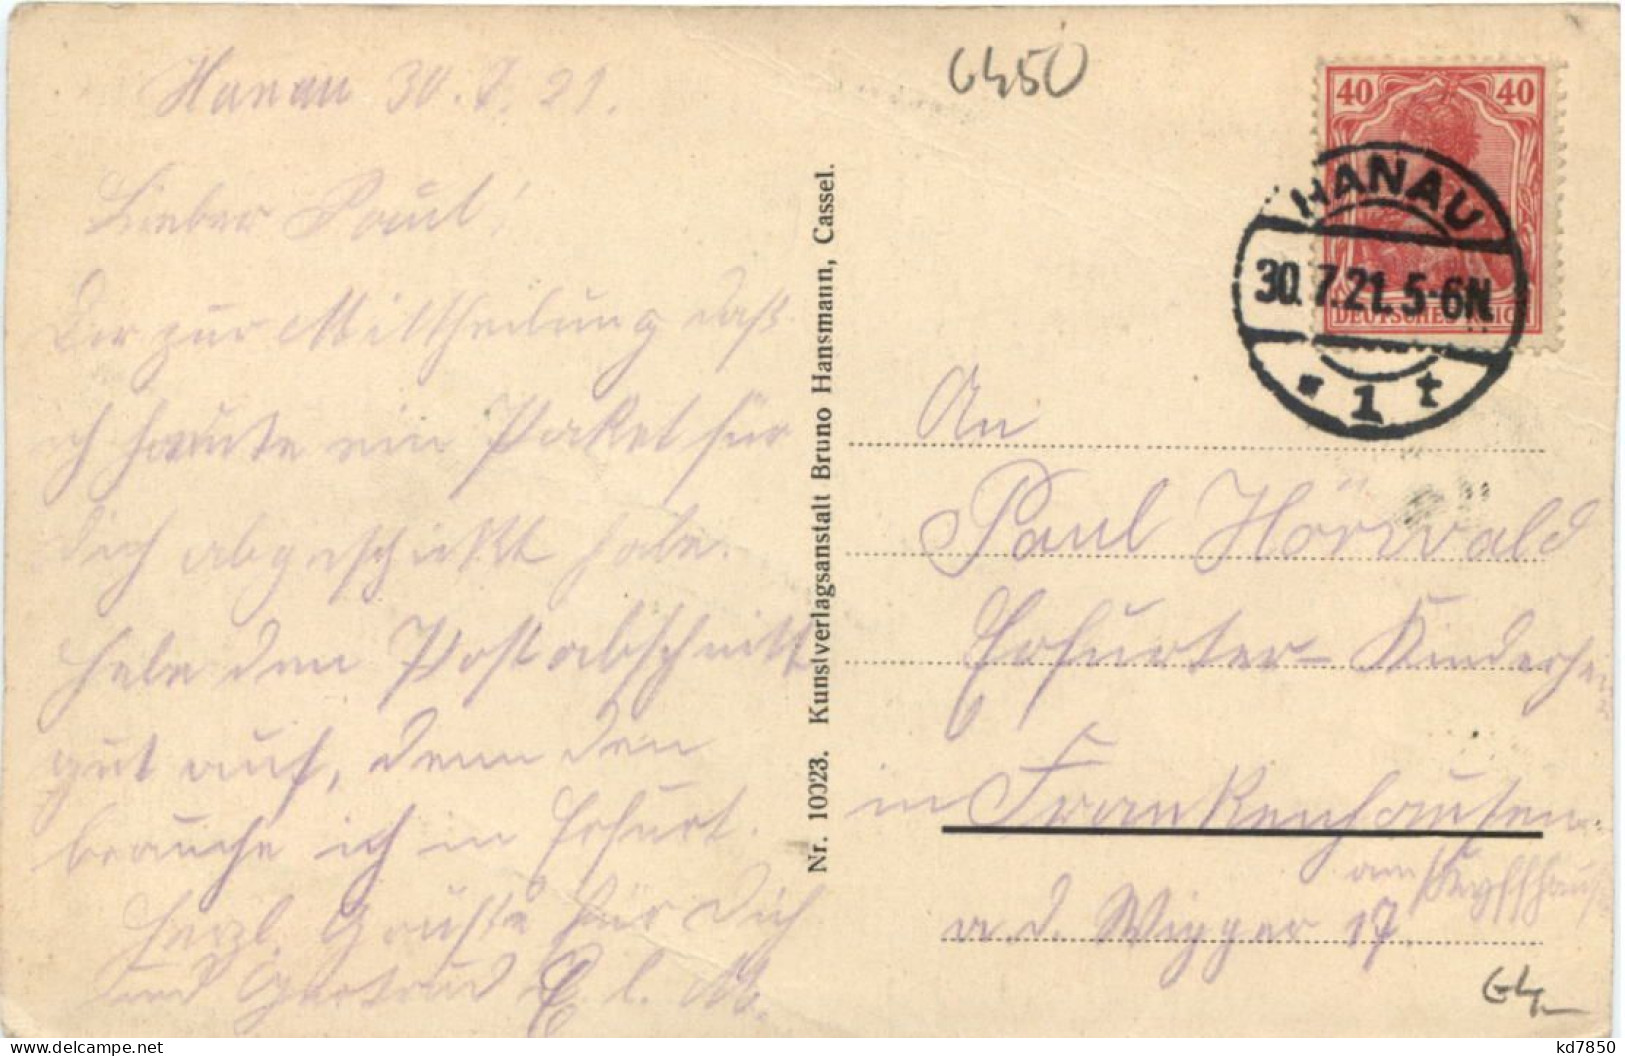 Hanau 30.7.21.
Lieber Paul!
Dir zur Mittheilung daß
ich heute ein Paket für
Dich abgeschickt habe.
Hebe den Postabschnitt
gut auf, denn den
brauche ich in Erfurt.
Herzl. Grüße für Dich
und Gertrud
Nr. 10023. Kunstverlagsanstalt Bruno Hansmann, Cassel.
6450
40 40
DEUTSCHES REICH
HANAU
30.7.21. 5-6N.
* 1 t
An
Paul Hörwald
Erfurter-Kinderheim
in Frankenhausen
am Kyffhäuser
a. d. Wipper 17.
kd7850